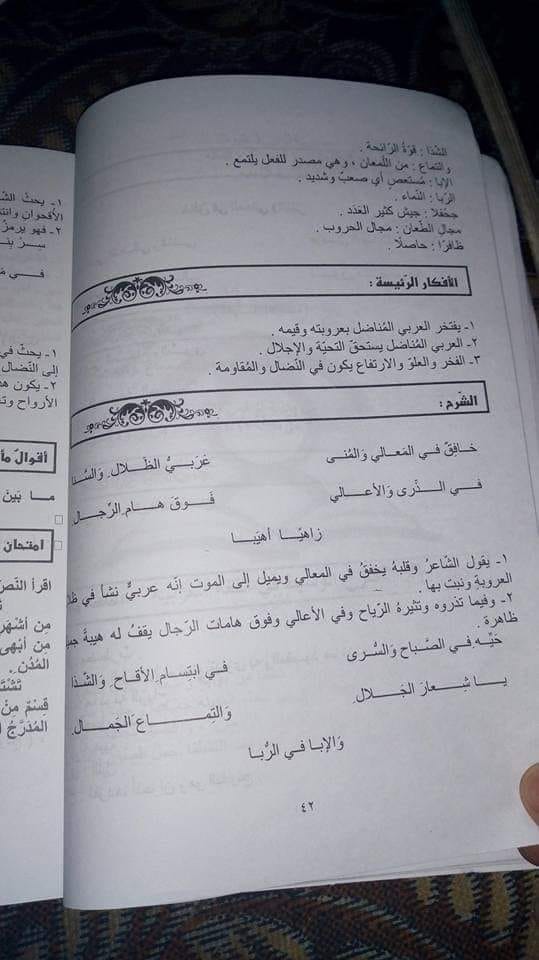 الشذا : قوّة الرّائحة .
والتماع : من اللّمعان ، وهي مصدر للفعل يلتمع .
الإبا : مُستعصٍ أي صعبٌ وشديد .
الرّبا : النّماء .
جحفلاً : جيش كثير العَدَد .
مجال الطّعان : مجال الحروب .
ظافرًا : حاصلًا .
الأفكار الرّئيسة :
١- يفتخر العربي المُناضل بعروبته وقيمه .
٢- العربي المُناضل يستحقّ التحيّة والإجلال .
٣- الفخر والعلوّ والارتفاع يكون في النّضال والمُقاومة .
الشّرح :
خـافِقٌ في المَعـالي وَالمُنـى عَرَبـيُّ الظِّـلالِ وَالسّنا
في الـذُّرى وَالأعـالي فَـوقَ هـامِ الرِّجـالِ
زاهيًـا أهيَبـا
١- يقول الشّاعرُ وقلبهُ يخفقُ في المعالي ويميل إلى الموت إنّه عربيٌّ نشأ في
العروبةِ ونبت بها .
٢- وفيما تذروه وتثيرهُ الرّياح وفي الأعالي وفوق هامات الرّجال يقفُ له هيبةً
ظاهرة .
حَيِّـهِ في الصَّبـاحِ وَالسُّرى في ابتِسـامِ الأقـاحِ وَالشَّذا
يـا شِـعارَ الجَـلالِ وَالتِمـاعَ الجَمـالِ
وَالإبـا في الرُّبـا
٤٢
١- يحثّ
الأقحوان
٢- فهو يرمزُ
سرّ
في
١- يحثّ في
إلى النّضال
٢- يكون
الأرواح
أقوال
ما بَينَ
امتحان
اقرأ النّصّ
مِن أشْهَرِ
مِن أبْهى
المُدُنِ .
قِسْمٌ مِنْ
المُدَرَّجُ